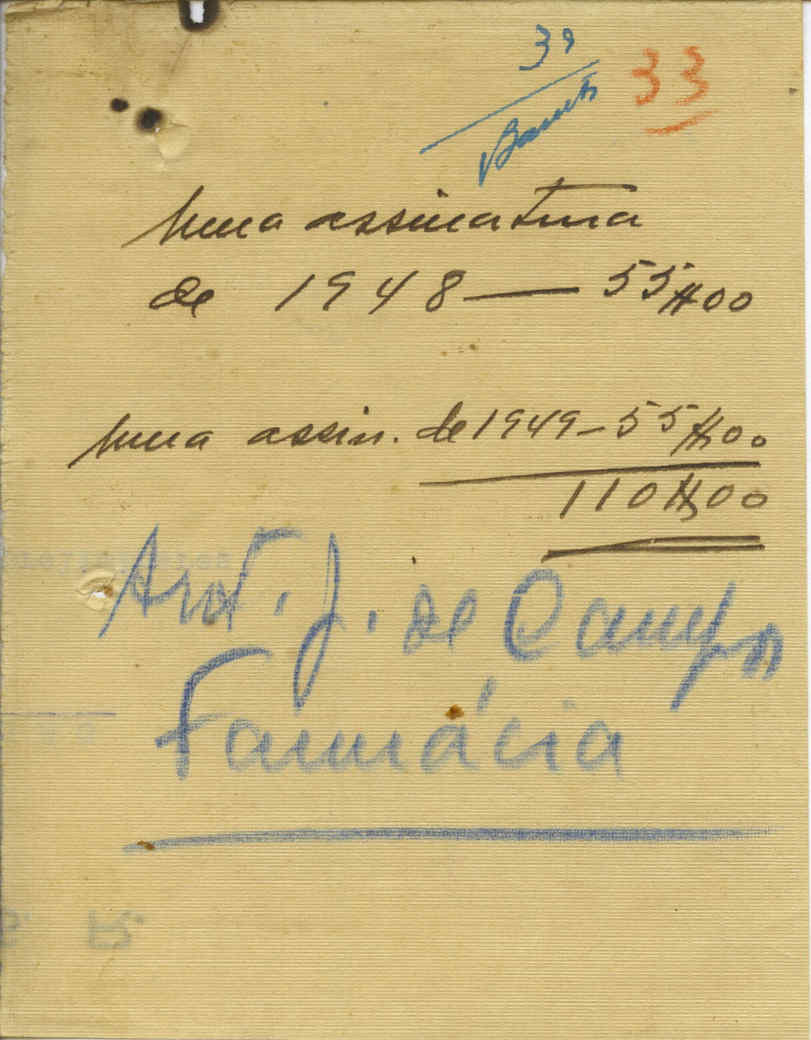 33
Uma assinatura
de 1948 — 55$00
Uma assin. de 1949 - 55$00
110$00
Ant. J. de Campos
Farmácia